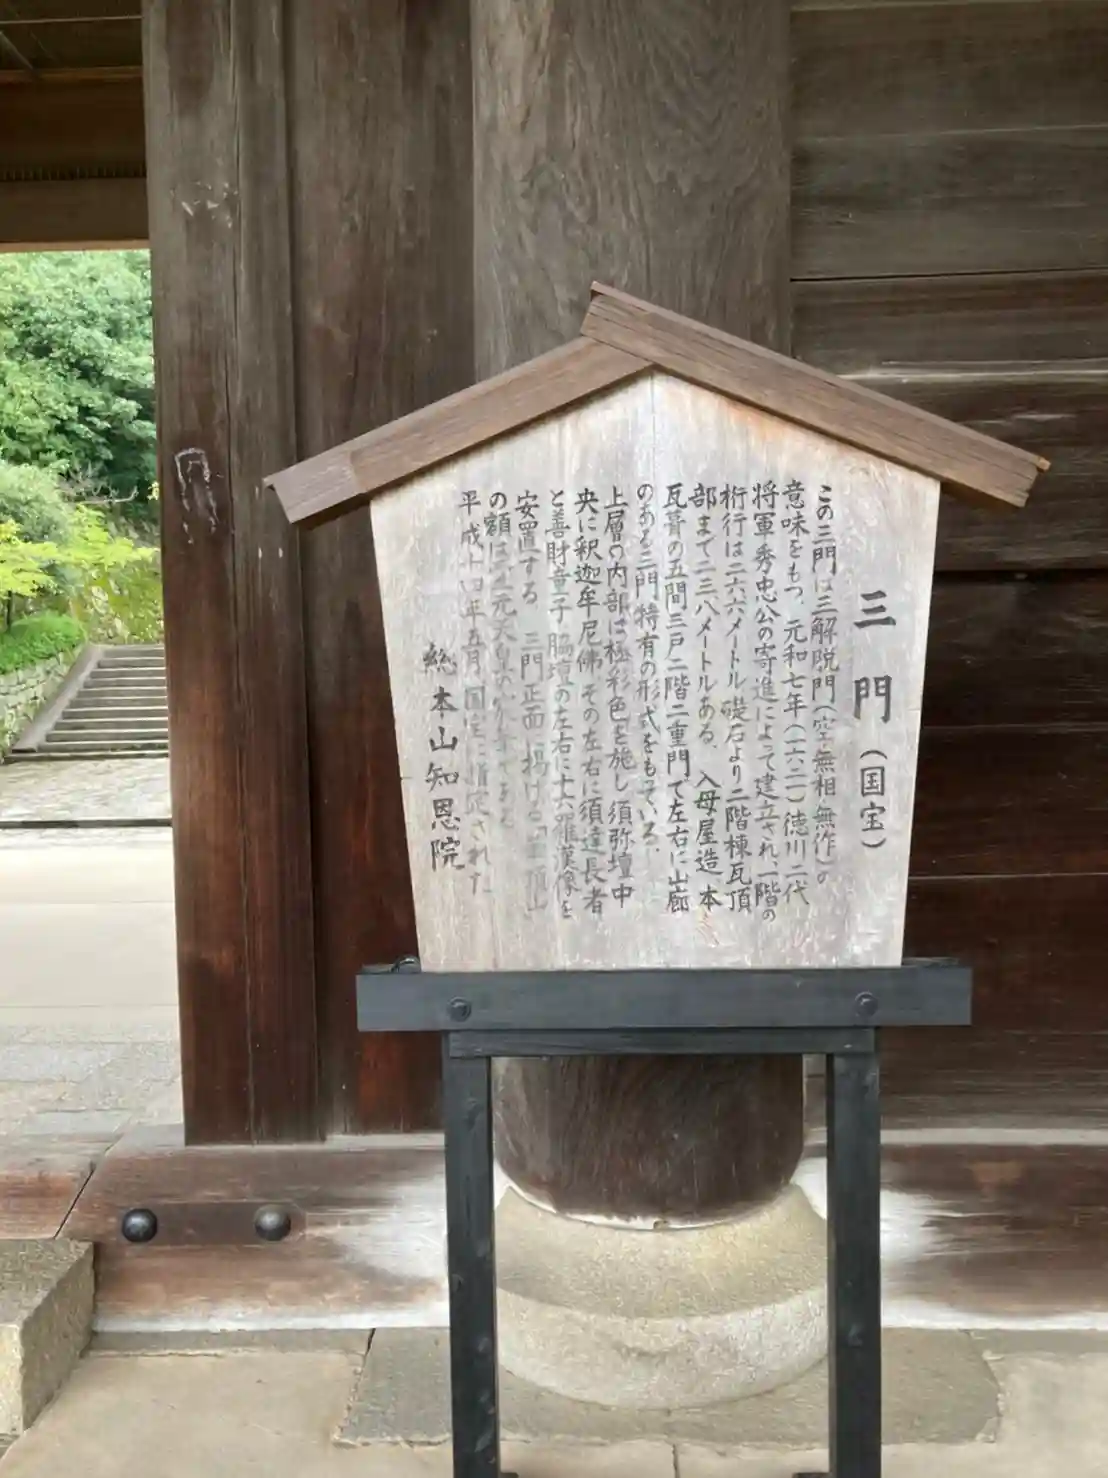 三門(国宝)
この三門は三解脱門(空・無相・無作)の
意味をもつ、元和七年(一六二一)徳川二代
将軍秀忠公の寄進によって建立され、一階の
桁行は二六・六メートル、礎石より二階棟瓦頂
部まで二三・八メートルある、入母屋造、本
瓦葺の五間三戸二階二重門で左右に山廊
のある三門特有の形式をもっている。
上層の内部は極彩色を施し、須弥壇中
央に釈迦牟尼佛、その左右に須達長者
と善財童子、脇壇の左右に十六羅漢像を
安置する 三門正面に揚げる「華頂山」
の額は霊元天皇の
平成十四年五月国宝に指定された
総本山知恩院